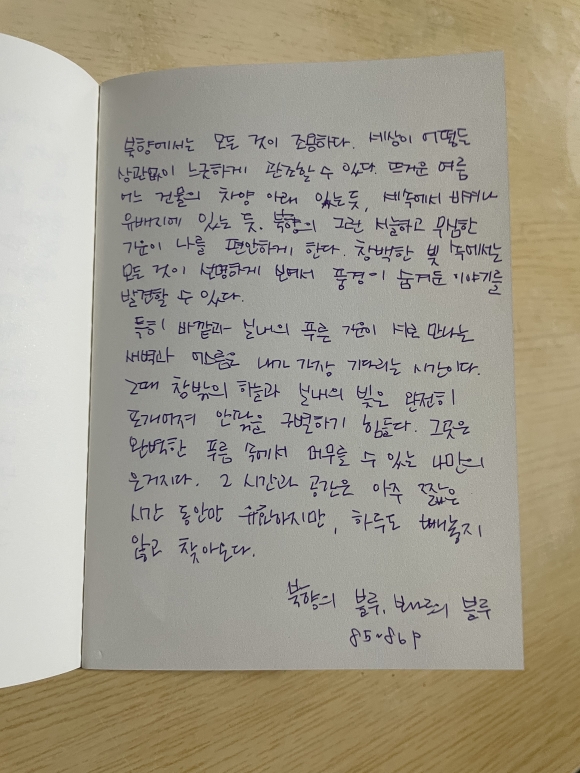 북향에서는 모든 것이 조용하다. 세상이 어떻든
상관없이 느긋하게 관조할 수 있다. 뜨거운 여름
어느 건물의 차양 아래 있는 듯, 세속에서 비켜나
유배지에 있는 듯. 북향의 그런 서늘하고 무심한
기운이 나를 편안하게 한다. 창백한 빛 속에서는
모든 것이 선명하게 보여서 풍경이 숨겨둔 이야기를
발견할 수 있다.
특히 바깥과 실내의 푸른 기운이 서로 만나는
새벽과 어스름은 내가 가장 기다리는 시간이다.
그때 창밖의 하늘과 실내의 빛은 완전히
포개어져 안팎을 구별하기 힘들다. 그곳은
완벽한 푸름 속에서 머무를 수 있는 나만의
은거지다. 그 시간과 공간은 아주 짧은
시간 동안만 유효하지만, 하루도 빼놓지
않고 찾아온다.
북향의 블루, 의 블루
85~86p